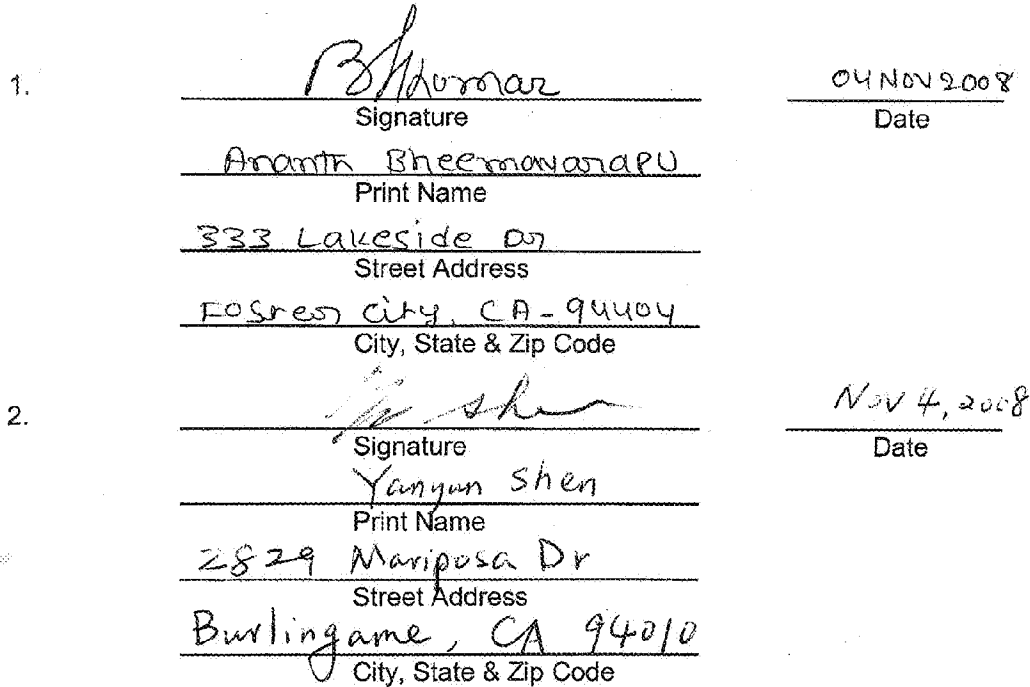 1. BhKumar 04 NOV 2008
Signature Date
Ananth Bheemavarapu
Print Name
333 Lakeside Dr
Street Address
Foster City, CA - 94404
City, State & Zip Code
2. Shen Nov 4, 2008
Signature Date
Yanyun Shen
Print Name
2829 Mariposa Dr
Street Address
Burlingame, CA 94010
City, State & Zip Code